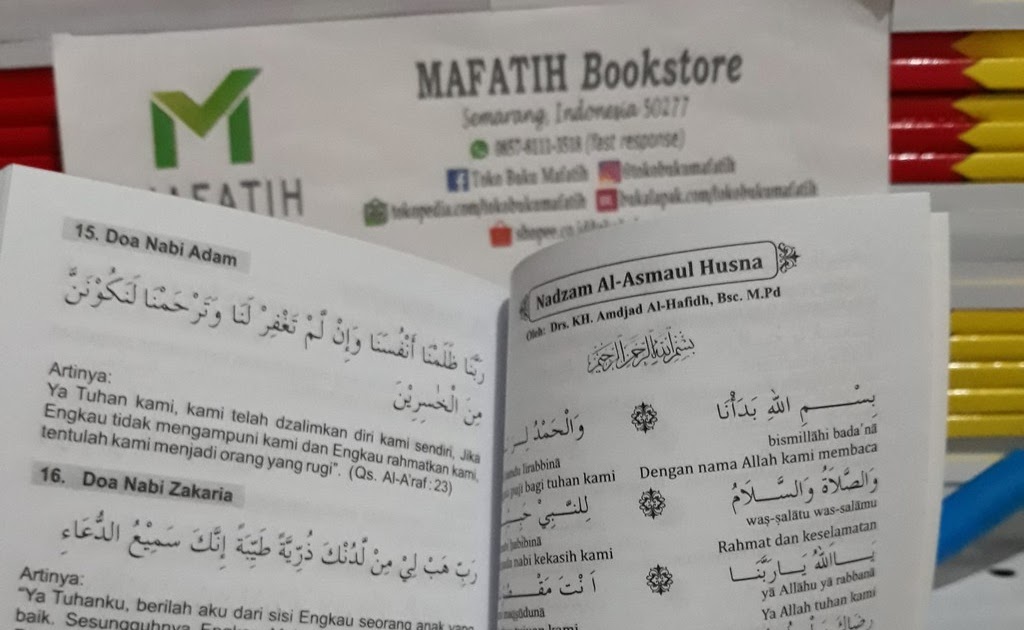 MAFATIH Bookstore
Semarang, Indonesia 50277
0857-8111-3518 (fast response)
Toko Buku Mafatih @tokobukumafatih
tokopedia.com/tokobukumafatih bukalapak.com/tokobukumafatih
MAFATIH
15. Doa Nabi Adam
رَبَّنَا ظَلَمْنَا أَنْفُسَنَا وَإِنْ لَّمْ تَغْفِرْ لَنَا وَتَرْحَمْنَا لَنَكُوْنَنَّ
مِنَ الْخٰسِرِيْنَ
Artinya:
Ya Tuhan kami, kami telah dzalimkan diri kami sendiri, Jika
Engkau tidak mengampuni kami dan Engkau rahmatkan kami,
tentulah kami menjadi orang yang rugi". (Qs. Al-A'raf:23)
16. Doa Nabi Zakaria
رَبِّ هَبْ لِيْ مِنْ لَّدُنْكَ ذُرِّيَّةً طَيِّبَةً إِنَّكَ سَمِيْعُ الدُّعَاءِ
Artinya:
"Ya Tuhanku, berilah aku dari sisi Engkau seorang anak yang
baik. Sesungguhnya Engkau
Nadzam Al-Asmaul Husna
Oleh: Drs. KH. Amdjad Al-Hafidh, Bsc. M.Pd
بسم الله الرحمن الرحيم
بِسْـــمِ اللهِ بَدَأْنَا وَالْحَمْدُ
bismillāhi bada'nā lirabbinā
Dengan nama Allah kami membaca puji bagi tuhan kami
وَالصَّلَاةُ وَالسَّـــلَامُ لِلنَّـــبِيْ
waṣ-ṣalātu was-salāmu ḥabibinā
Rahmat dan keselamatan nabi kekasih kami
يَـــااَللهُ يَـــارَبَّنَـــا اَنْتَ
yā Allāhu yā rabbanā maqṣūdunā
Ya Allah tuhan kami kami